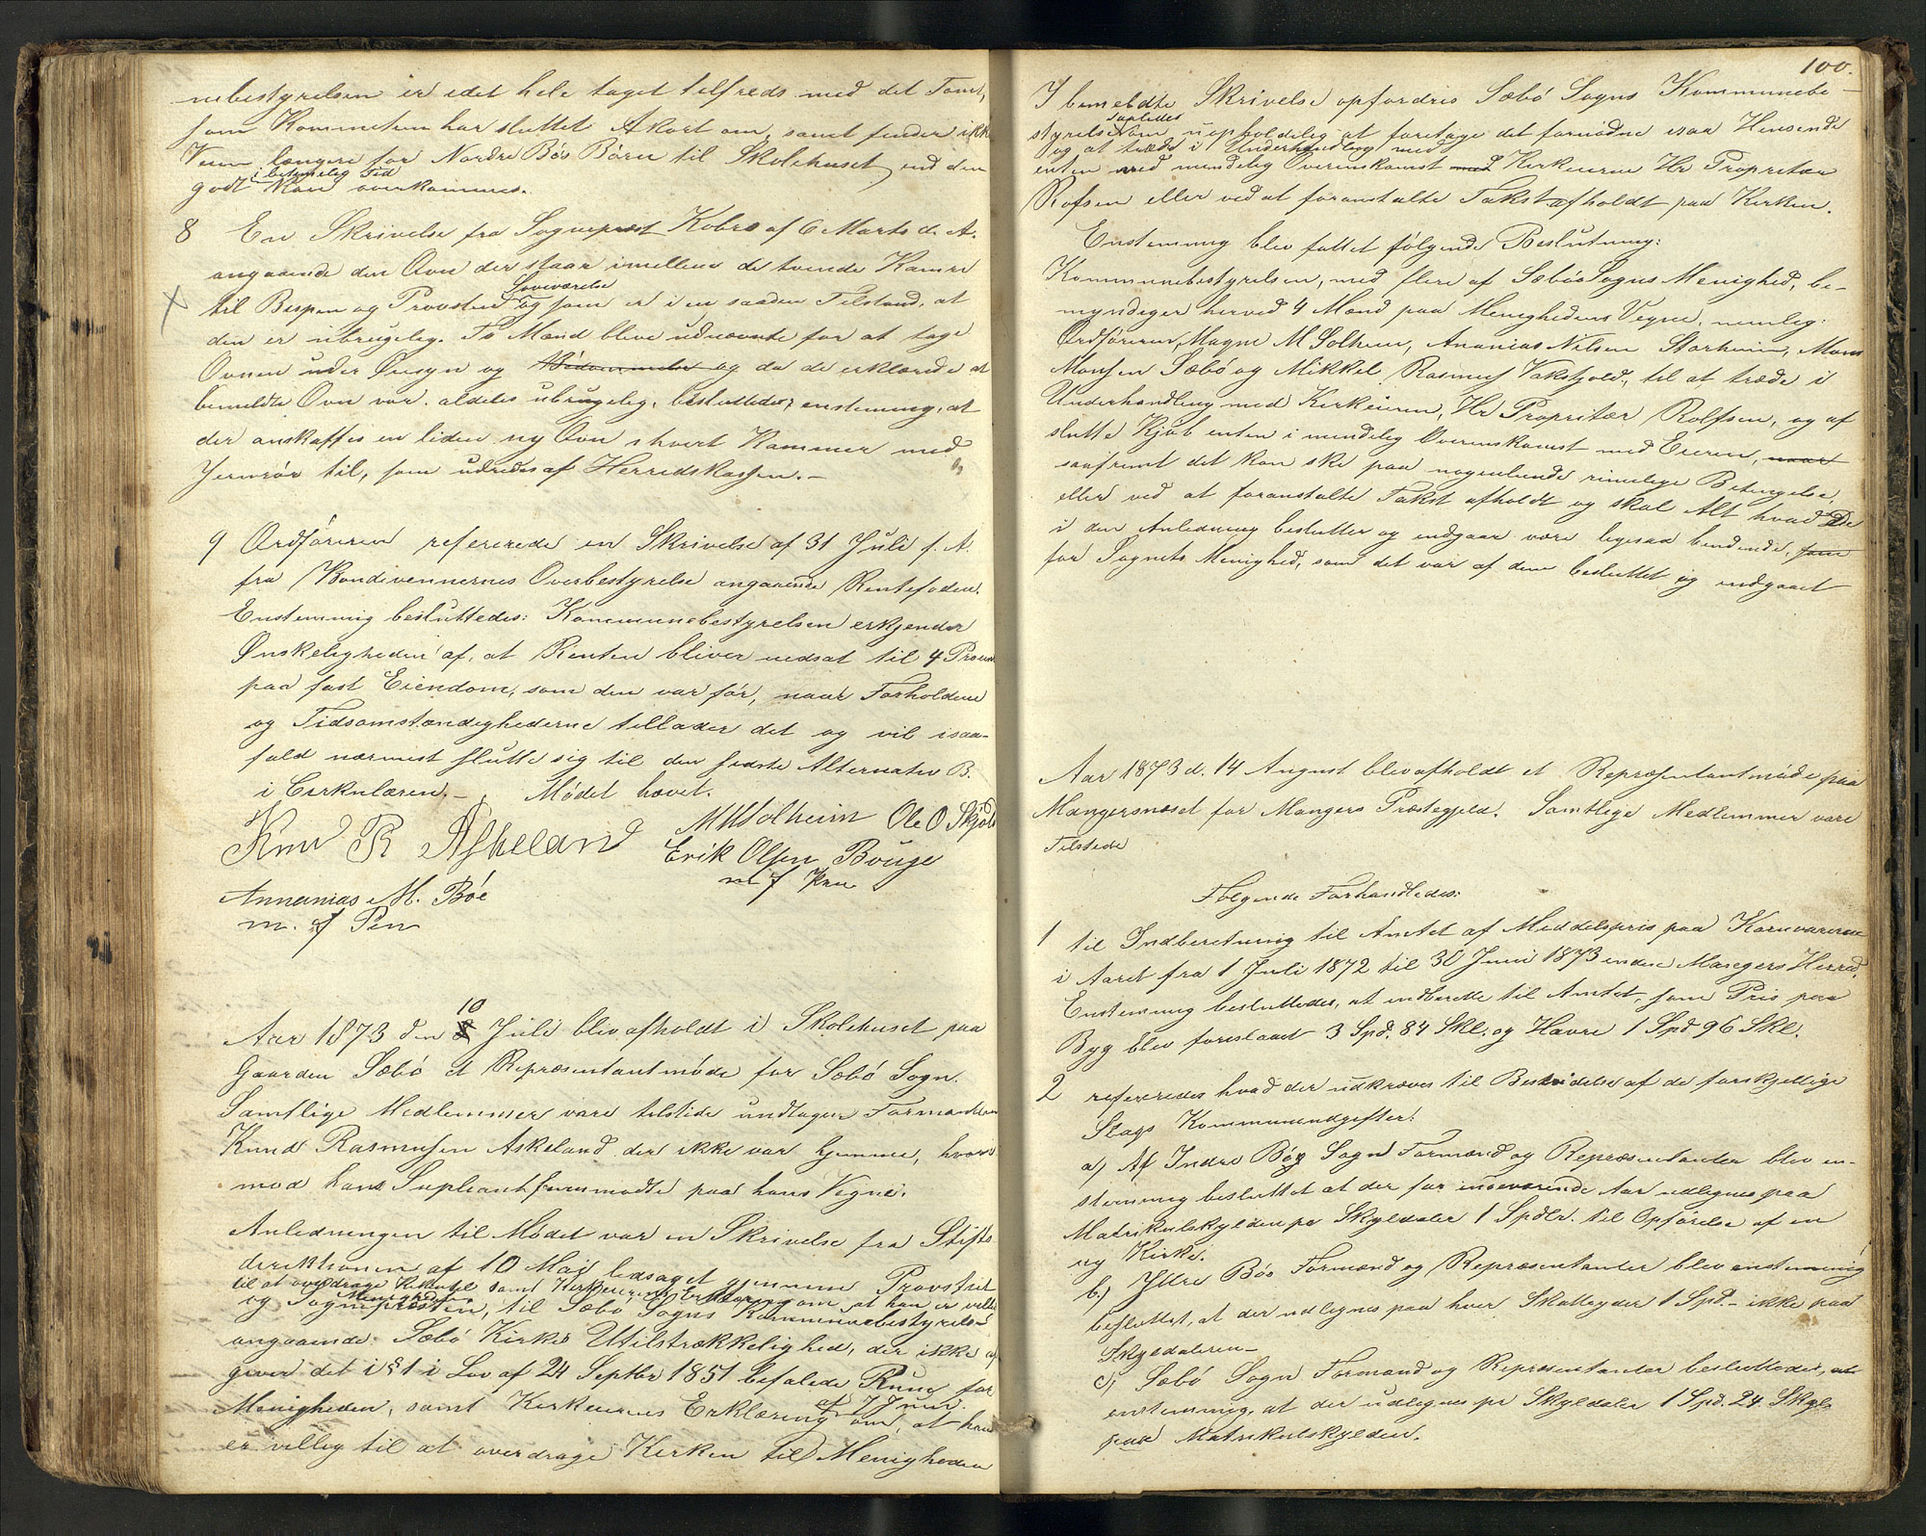 nebestyrelsen er idet hele taget tilfreds med det Tomt,
som Kommiteen har sluttet Akort om, samt finder ikke
Veien længere for Nordre Bøs Børn til Skolehuset, end den
i betimelig Tid
godt kan overkommes.
8 En Skrivelse fra Sognepræst Kobro af 6 Marts d. A.
angaaende den Ovn der staar imellem de tvende Kamre
Soveværelse
til Bispen og Provsten og som er i en saadan Tilstand, at
den er ubrugelig. To Mænd bleve udnævnte for at tage
Ovnen under Øiesyn og og da de erklærede at
bemeldte Ovn var aldeles ubrugelig, besluttedes enstemmig, at
der anskaffes en liden ny Ovn i hvert Kammer med
Jernrør til, som udredes af Herredskassen.-
9 Ordføreren refererede en Skrivelse af 31 Juli f. A.
fra Bondevennernes Overbestyrelse angaaende Rentefoden.
Enstemmig besluttedes: Kommunebestyrelsen erkjender
Ønskeligheden af, at Renten bliver nedsat til 4 Procent
paa fast Eiendom, som den var før, naar Forholdene
og Tidsomstændighederne tillader det og vil isaa-
fald nærmest slutte sig til den sidste Alternativ B.
i Cirkulæren.- Mødet hævet.
Knud R Askeland MMSolheim Ole O Skjold
Erik Olsen Bouge
m f Pen
Annanias M. Bøe
m. f Pen
10
Aar 1873 den 8 Juli blev afholdt i Skolehuset paa
Gaarden Sæbø et Repræsentantmøde for Sæbø Sogn.
Samtlige Medlemmer vare tilstede undtagen Formanden
Knud Rasmussen Askeland der ikke var hjemme, hvori-
mod hans Supleant fremmødte paa hans Vegne.
Anledningen til Mødet var en Skrivelse fra Stifts-
direktionen af 10 Mai ledsaget gjennem Provstiet
til at overdrage Kirken til samt Kirkeeierens Erklæring om, at han er villig
Menigheden
og Sognepræsten, til Sæbø Sogns Kommunebestyrelse
angaaende Sæbø Kirkes Utilstrækkelighed, der ikke af-
giver det i § 1 i Lov af 24 Septbr 1851 befalede Rum for
af 7 Juni
Menigheden, samt Kirkeeierens Erklæring om, at han
er villig til at overdrage Kirken til Menigheden
100.
I bemeldte Skrivelse opfordres Sæbø Sogns Kommunebe-
saaledes
styrelse om uopholdelig at foretage det fornødne isaa Henseende
og at træde i Underhandling med
enten ved mindelig Overenskomst med Kirkeeieren Hr Propritær
Rolfsen eller ved at foranstalte Takst afholdt paa Kirken.
Enstemmig blev fattet følgende Beslutning:
Kommunebestyrelsen, med flere af Sæbø Sogns Menighed, be-
myndiger herved 4 Mænd paa Menighedens Vegne, nemlig:
Ordføreren, Magne M Solheim, Ananias Nilsen Storheim, Mons
Monsen Sæbø og Mikkel Rasmus Vakskjold, til at træde i
Underhandling med Kirkeeieren, Hr Propritær Rolfsen, og af
slutte Kjøb enten i mindelig Overenskomst med Eieren, naar
saafremt det kan ske paa nogenlunde rimelige Betingelse,
eller ved at foranstalte Takst afholdt og skal Alt hvad De
i den Anledning beslutter og indgaar være ligesaa bindende, som
for Sognets Menighed, som det var af dem besluttet og indgaaet
Aar 1873 d. 14 August blev afholdt et Repræsentantmøde paa
Mangersnæset for Mangers Præstegjeld. Samtlige Medlemmer vare
Tilstede
Følgende Forhandledes:
1 til Indberetning til Amtet af Middelspris paa Kornvarerne
i Aaret fra 1 Juli 1872 til 30 Juni 1873 inden Mangers Herred.
Enstemmig besluttedes, at indberette til Amtet, som Pris paa
Byg blev foreslaaet 3 Spd. 84 Skl. og Havre 1 Spd 96 Skl.
2 refereredes hvad der udkræves til Bestridelse af de forskjellige
Slags Kommuneudgifter:
a, Af Indre Bøg Sogn Formænd og Repræsentanter blev en-
stemmig besluttet at der for indeværende Aar udlignes paa
Matrikulskylden pr Skylddaler 1 Spdlr. til Opførelse af en
ny Kirke.
b, Ytre Bøs Formænd og Repræsentanter blev enstemmig
besluttet, at der udlignes paa hver Skatteyder 1 Spd.- ikke paa
Skylddaleren-
c, Sæbø Sogn Formænd og Repræsentanter besluttedes, at
enstemmig, at der udlignes pr Skylddaler 1 Spd. 24 Skl.
paa Matrikulskylden.